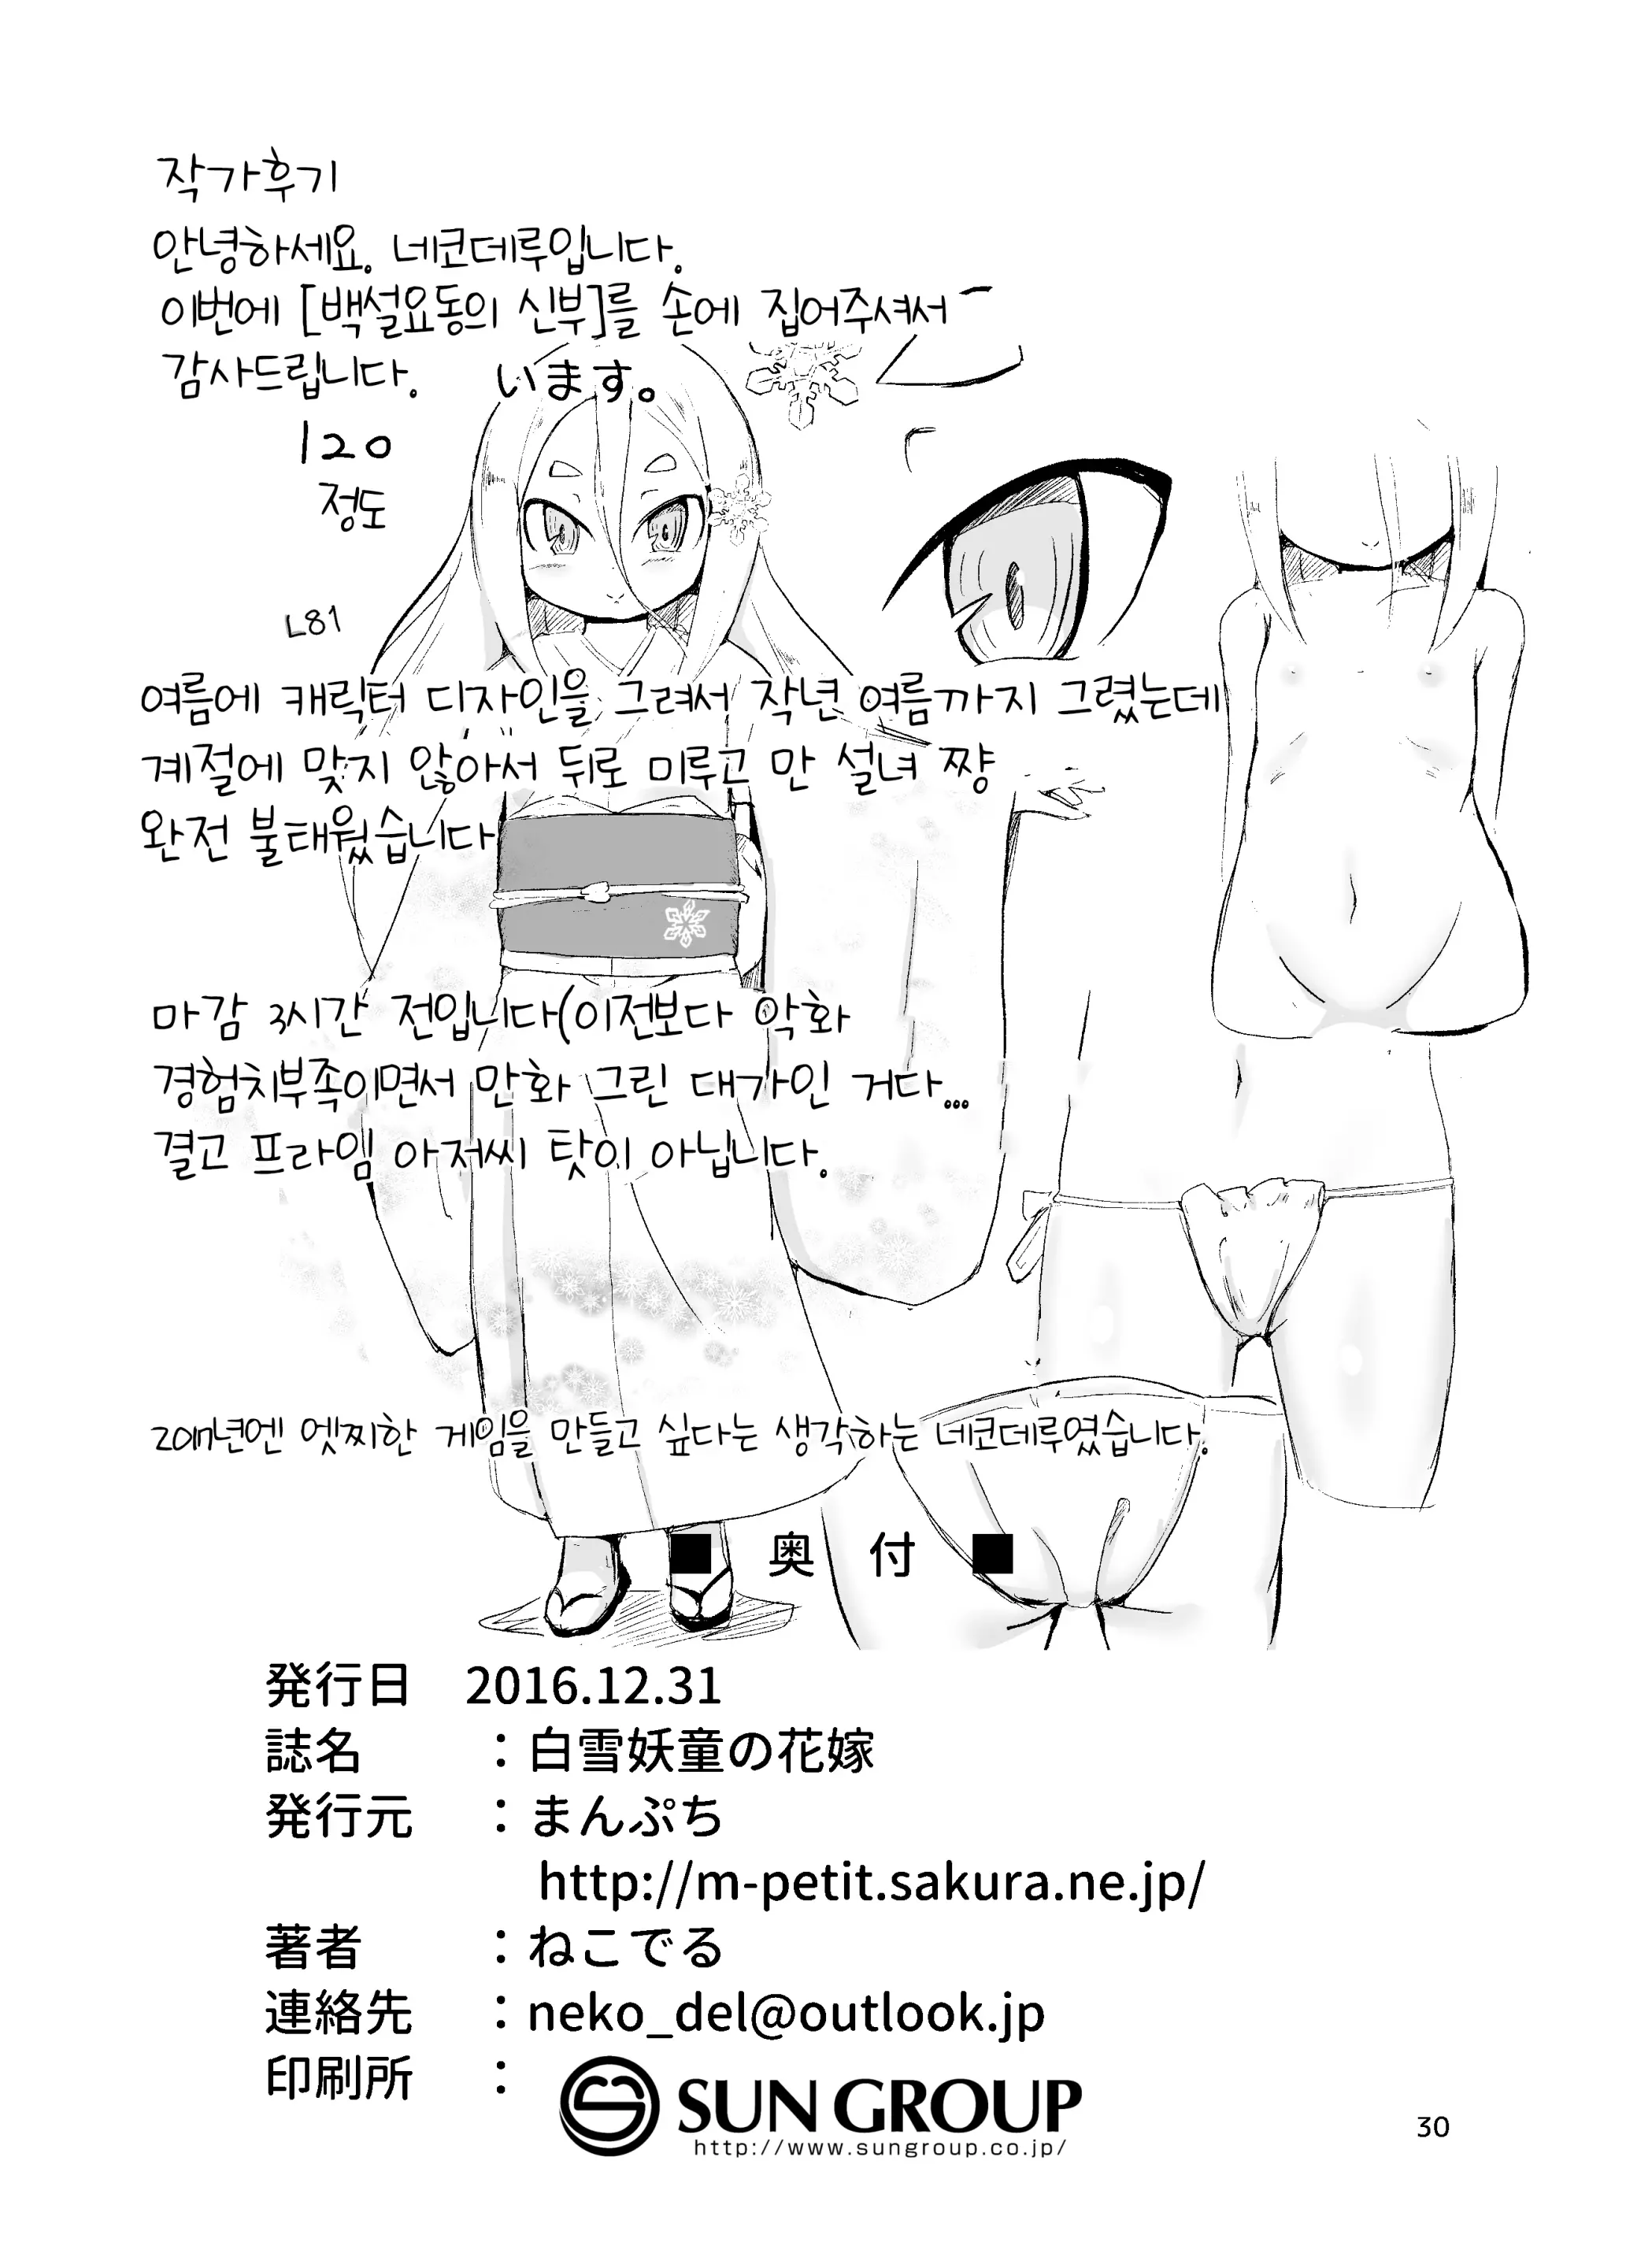 작가후기
안녕하세요. 네코데루입니다.
이번에 [백설요동의 신부]를 손에 집어주셔서
감사드립니다.
います。
120
정도
L81
여름에 캐릭터 디자인을 그려서 작년 여름까지 그렸는데
계절에 맞지 않아서 뒤로 미루고 만 설녀 쨩
완전 불태웠습니다
마감 3시간 전입니다(이전보다 악화
경험치부족이면서 만화 그린 대가인 거다...
결고 프라임 아저씨 탓이 아닙니다.
2017년엔 엣찌한 게임을 만들고 싶다는 생각하는 네코데루였습니다.
■ 奥 付 ■
発行日 2016.12.31
誌名 :白雪妖童の花嫁
発行元 :まんぷち
http://m-petit.sakura.ne.jp/
著者 :ねこでる
連絡先 :neko_del@outlook.jp
印刷所 :
SUN GROUP
http://www.sungroup.co.jp/
30